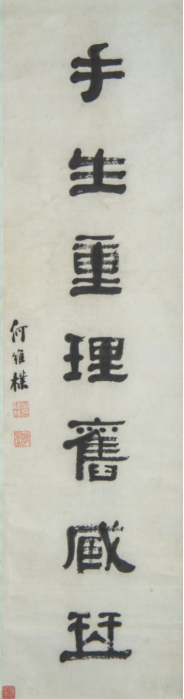 手生重理舊藏琹
何維樸